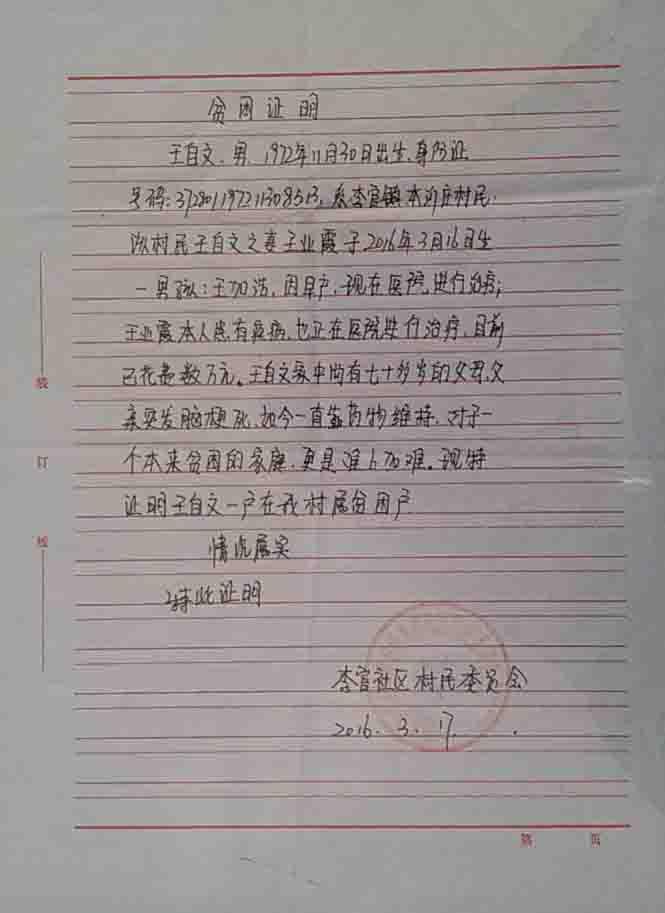 贫困证明
王自文、男、1972年11月30日出生、身份证
号码:372801197211308513,系李官镇本沂庄村民.
该村民王自文之妻王业霞于2016年3月16日生
一男孩:王加浩,因早产,现在医院进行治疗;
王业霞本人患有疾病,也正在医院进行治疗,目前
已花费数万元。王自文家中尚有七十多岁的父母,父
亲突发脑梗死,如今一直靠药物维持,对于一
个本来贫困的家庭,更是难上加难。现特
证明王自文一户在我村属贫困户
情况属实
特此证明
李官社区村民委员会
2016.3.17.
装
订
线
第 页